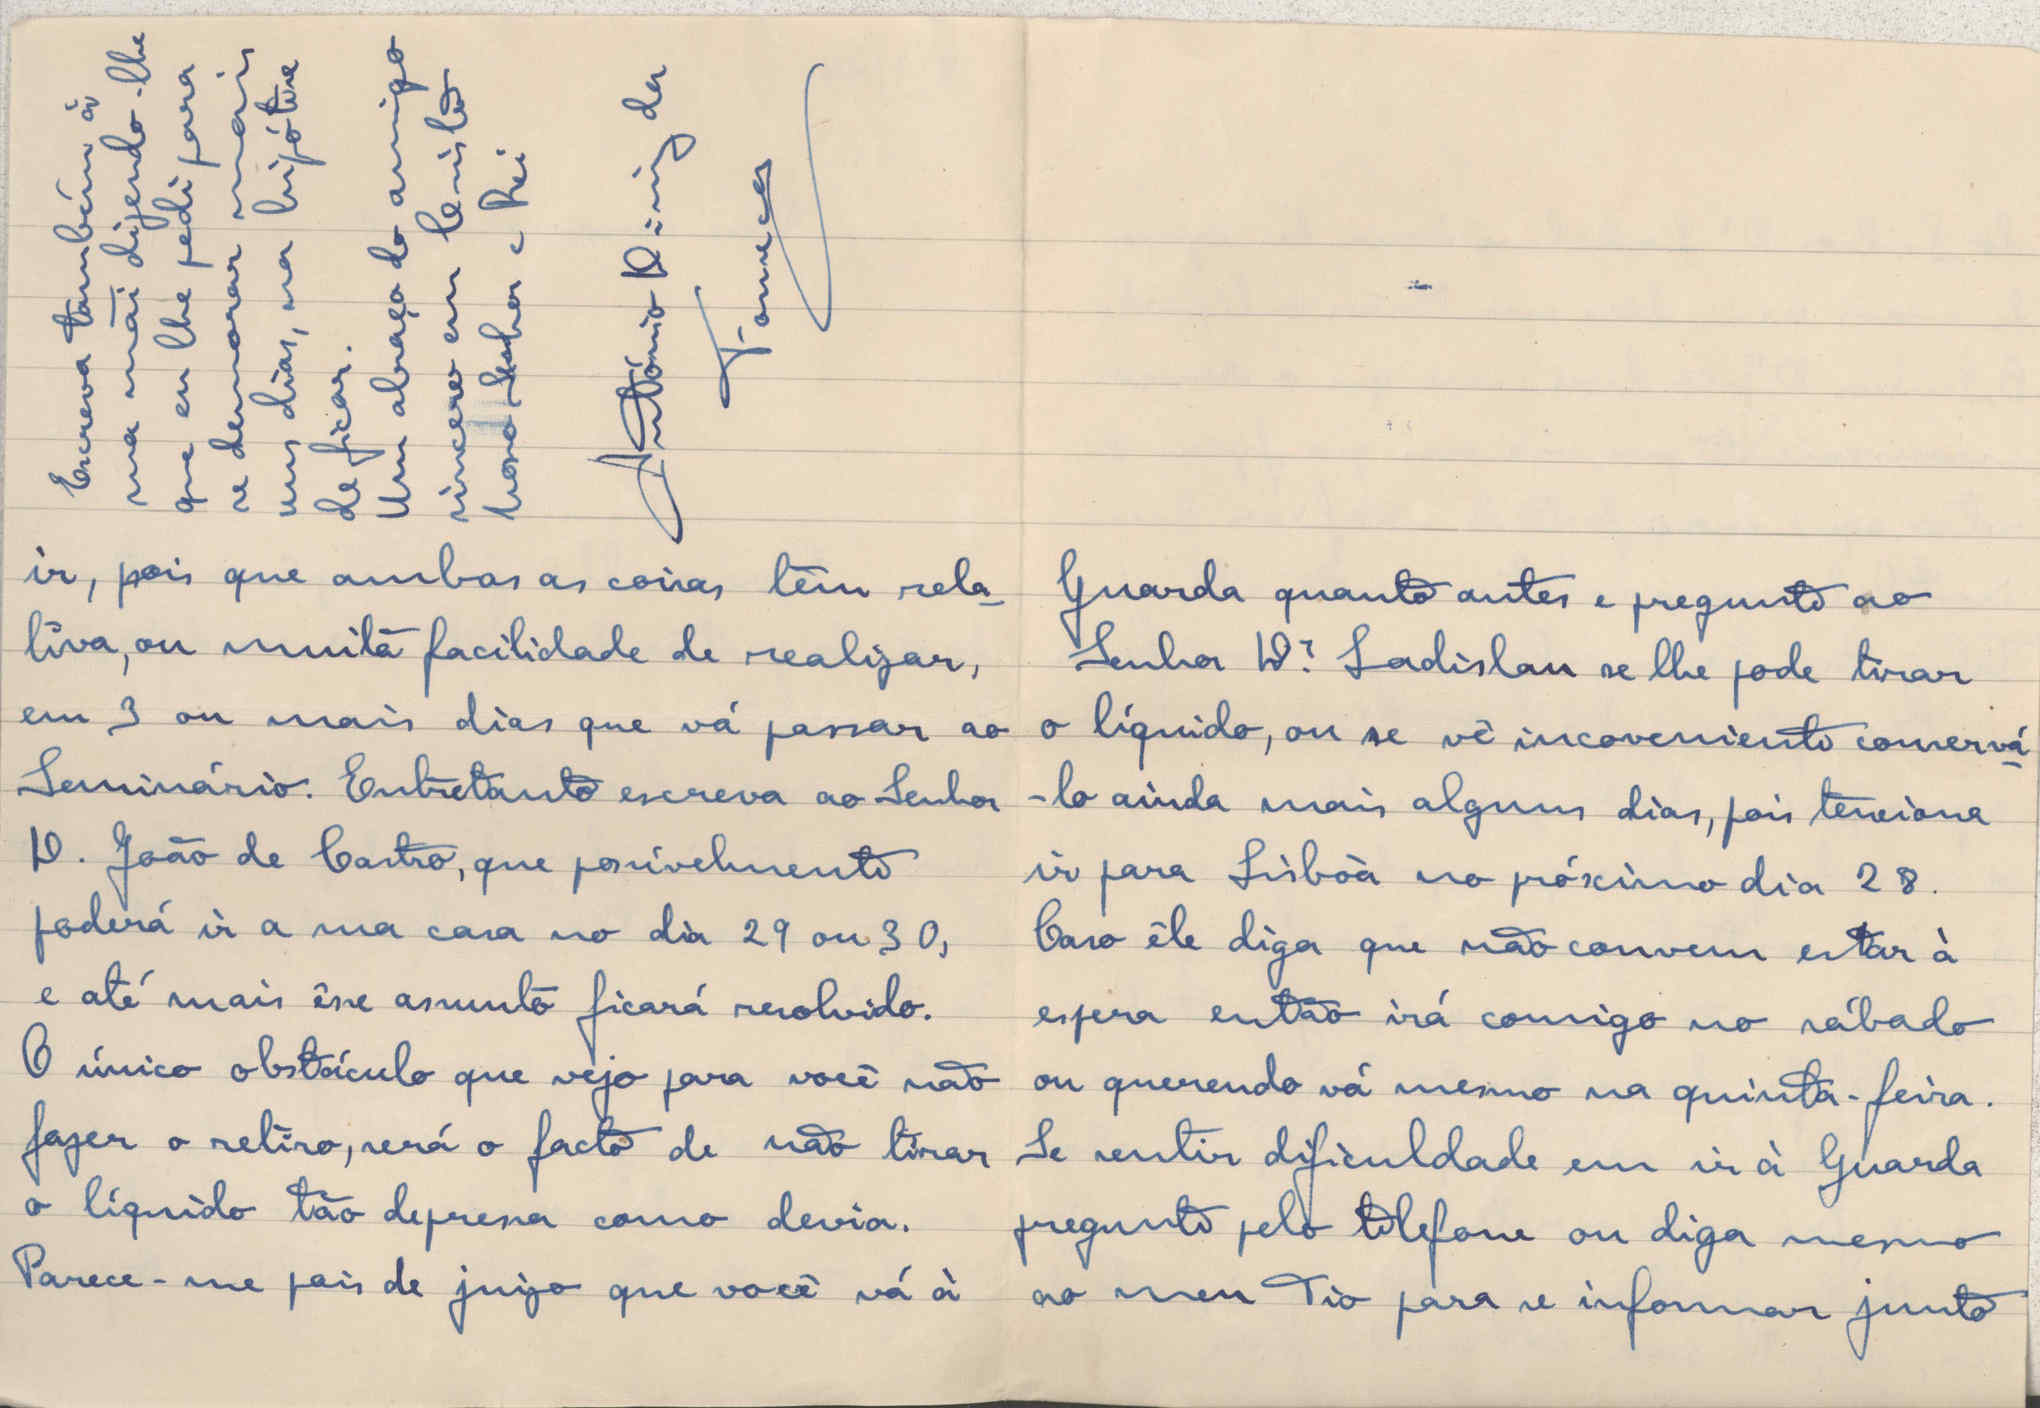 ir, pois que ambas as coisas têm rela-
tiva, ou muita facilidade de realizar,
em 3 ou mais dias que vá passar ao
Seminário. Entretanto escreva ao Senhor
D. João de Castro, que possívelmente
poderá ir a sua casa no dia 29 ou 30,
e até mais êsse assunto ficará resolvido.
O único obstáculo que vejo para você não
fazer o retiro, será o facto de não tirar
o líquido tão depressa como devia.
Parece-me pois de juizo que você vá à
Guarda quanto antes e pregunte ao
Senhor Dr. Ladislau se lhe pode tirar
o líquido, ou se vê incoveniente conservá-
-lo ainda mais alguns dias, pois tenciona
ir para Lisbôa no próximo dia 28.
Caso êle diga que não convem estar à
espera então irá comigo no sábado
ou querendo vá mesmo na quinta-feira.
Se sentir dificuldade em ir à Guarda
pregunte pelo telefone ou diga mesmo
ao meu Tio para se informar junto
Escreva também à
sua mãi dizendo-lhe
que eu lhe pedi para
se demorar mais
uns dias, na hipótese
de ficar.
Um abraço do amigo
sincero em Cristo
Nosso Senhor e Rei
António Diniz da
Fonseca